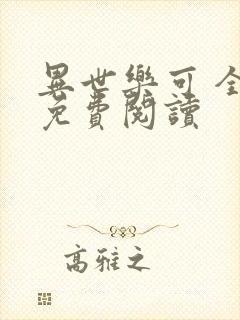 異世樂可全
免費閱讀
高雅之